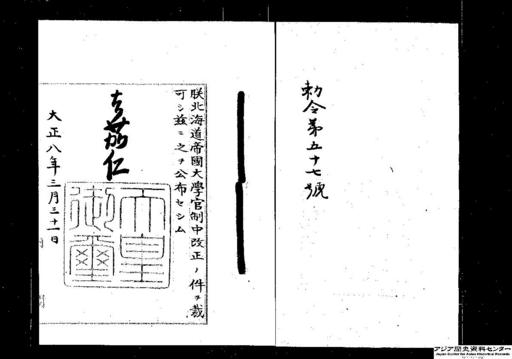 勅令第五十七號
朕北海道帝國大學官制中改正ノ件ヲ裁
可シ玆ニ之ヲ公布セシム
嘉仁
天皇御璽
大正八年三月三十一日
アジア歴史資料センター
Japan Center for Asian Historical Records